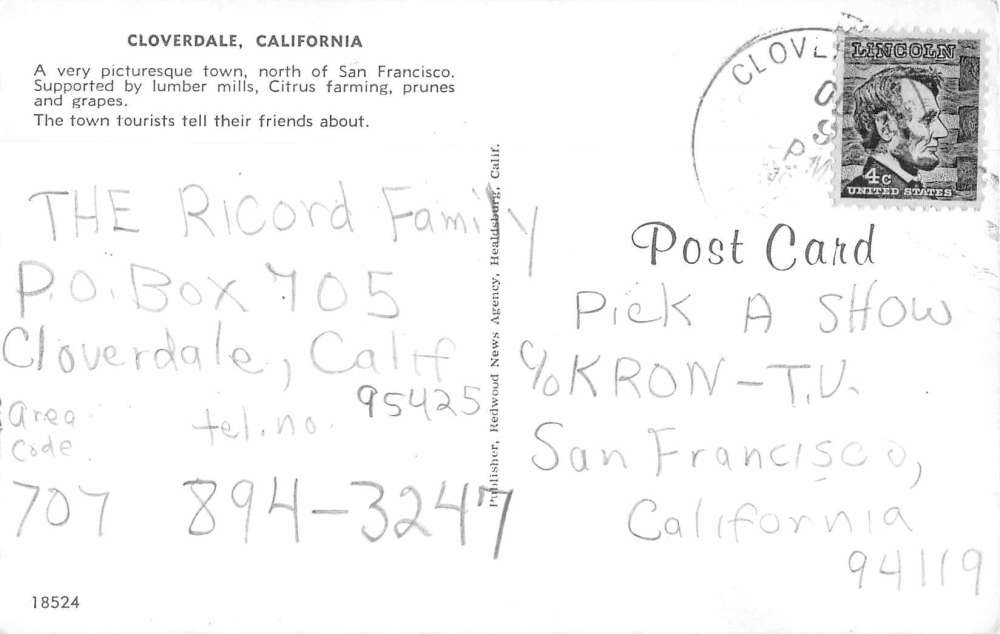 CLOVERDALE, CALIFORNIA
A very picturesque town, north of San Francisco.
Supported by lumber mills, Citrus farming, prunes
and grapes.
The town tourists tell their friends about.
THE Ricord Family
P.O. Box 705
Cloverdale, Calif
95425
area
code
tel. no.
707 894-3247
18524
Publisher, Redwood News Agency, Healdsburg, Calif.
CLOV
P M
LINCOLN
4c
UNITED STATES
Post Card
Pick A SHOW
c/o KRON-T.V.
San Francisco,
California
94119